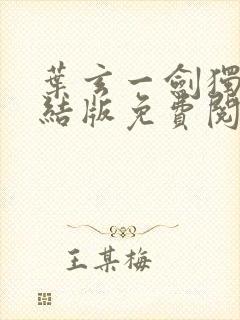 葉玄一劍獨
結版免費閱
王某梅